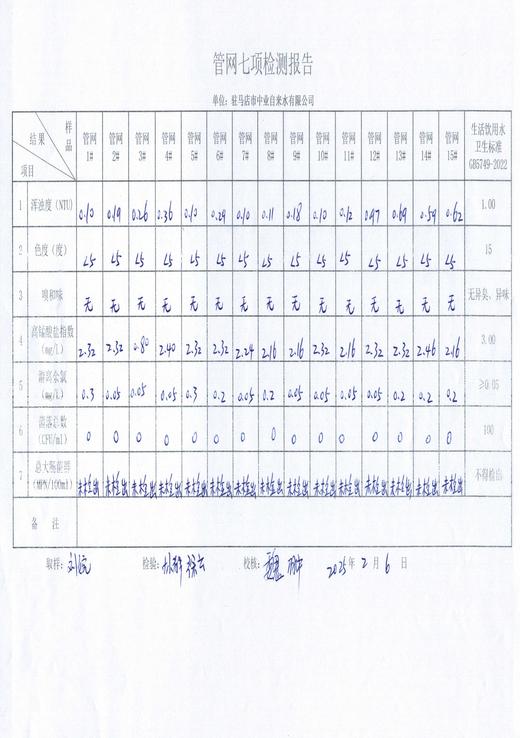 管网七项检测报告
单位：驻马店市中业自来水有限公司
结果 样品 项目 管网1# 管网2# 管网3# 管网4# 管网5# 管网6# 管网7# 管网8# 管网9# 管网10# 管网11# 管网12# 管网13# 管网14# 管网15# 生活饮用水卫生标准GB5749-2022
1 浑浊度（NTU） 0.10 0.19 0.26 0.36 0.10 0.29 0.10 0.11 0.18 0.10 0.12 0.47 0.69 0.59 0.62 1.00
2 色度（度） <5 <5 <5 <5 <5 <5 <5 <5 <5 <5 <5 <5 <5 <5 <5 15
3 嗅和味 无 无 无 无 无 无 无 无 无 无 无 无 无 无 无 无异臭、异味
4 高锰酸盐指数（mg/L） 2.32 2.32 0.80 2.40 2.32 2.32 2.24 2.16 2.16 2.32 2.16 2.32 2.32 2.46 2.16 3.00
5 游离余氯（mg/L） 0.3 0.05 0.05 0.05 0.3 0.2 0.05 0.2 0.05 0.05 0.05 0.05 0.2 0.2 0.2 ≥0.05
6 菌落总数（CFU/ml） 0 0 0 0 0 0 0 0 0 0 0 0 0 0 0 100
7 总大肠菌群（MPN/100ml） 未检出 未检出 未检出 未检出 未检出 未检出 未检出 未检出 未检出 未检出 未检出 未检出 未检出 未检出 未检出 不得检出
备 注
取样： 检验： 校核： 2025年2月6日